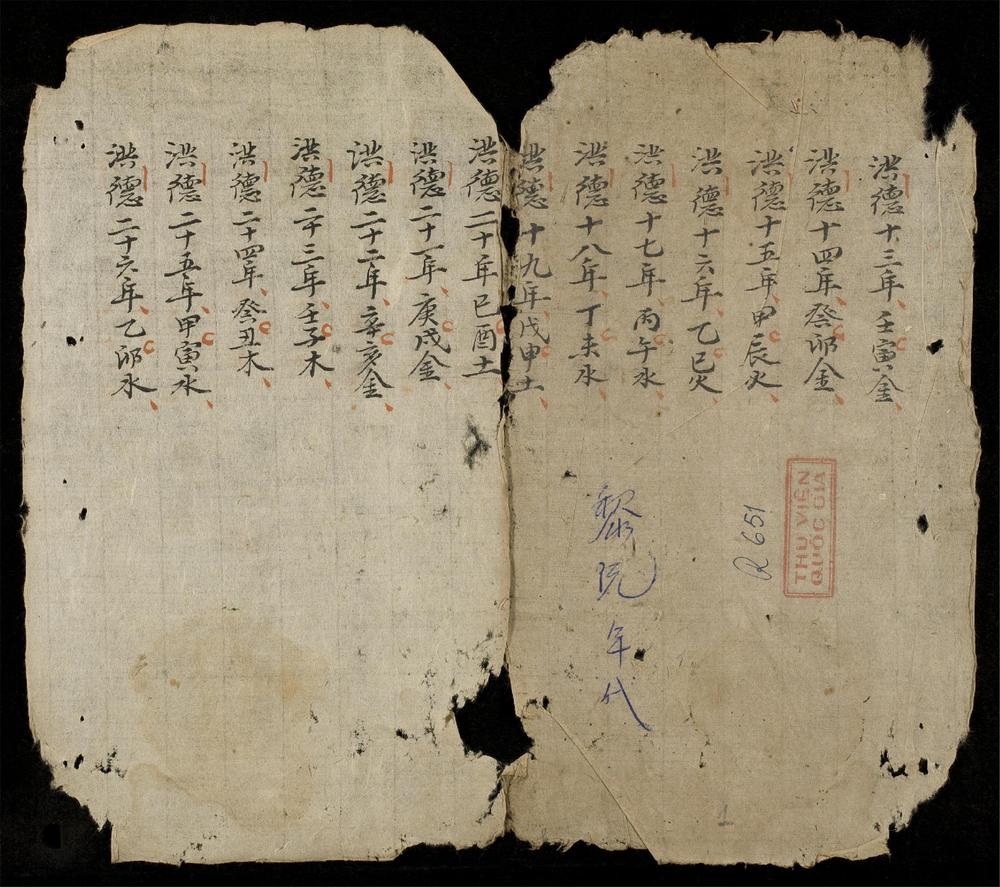 洪德十三年壬寅金
洪德十四年癸卯金
洪德十五年甲辰火
洪德十六年乙巳火
洪德十七年丙午水
洪德十八年丁未水
洪德十九年戊申土
洪德二十年己酉土
洪德二十一年庚戌金
洪德二十二年辛亥金
洪德二十三年壬子木
洪德二十四年癸丑木
洪德二十五年甲寅水
洪德二十六年乙卯水
黎阮年代
R 651
THƯ VIỆN
QUỐC GIA